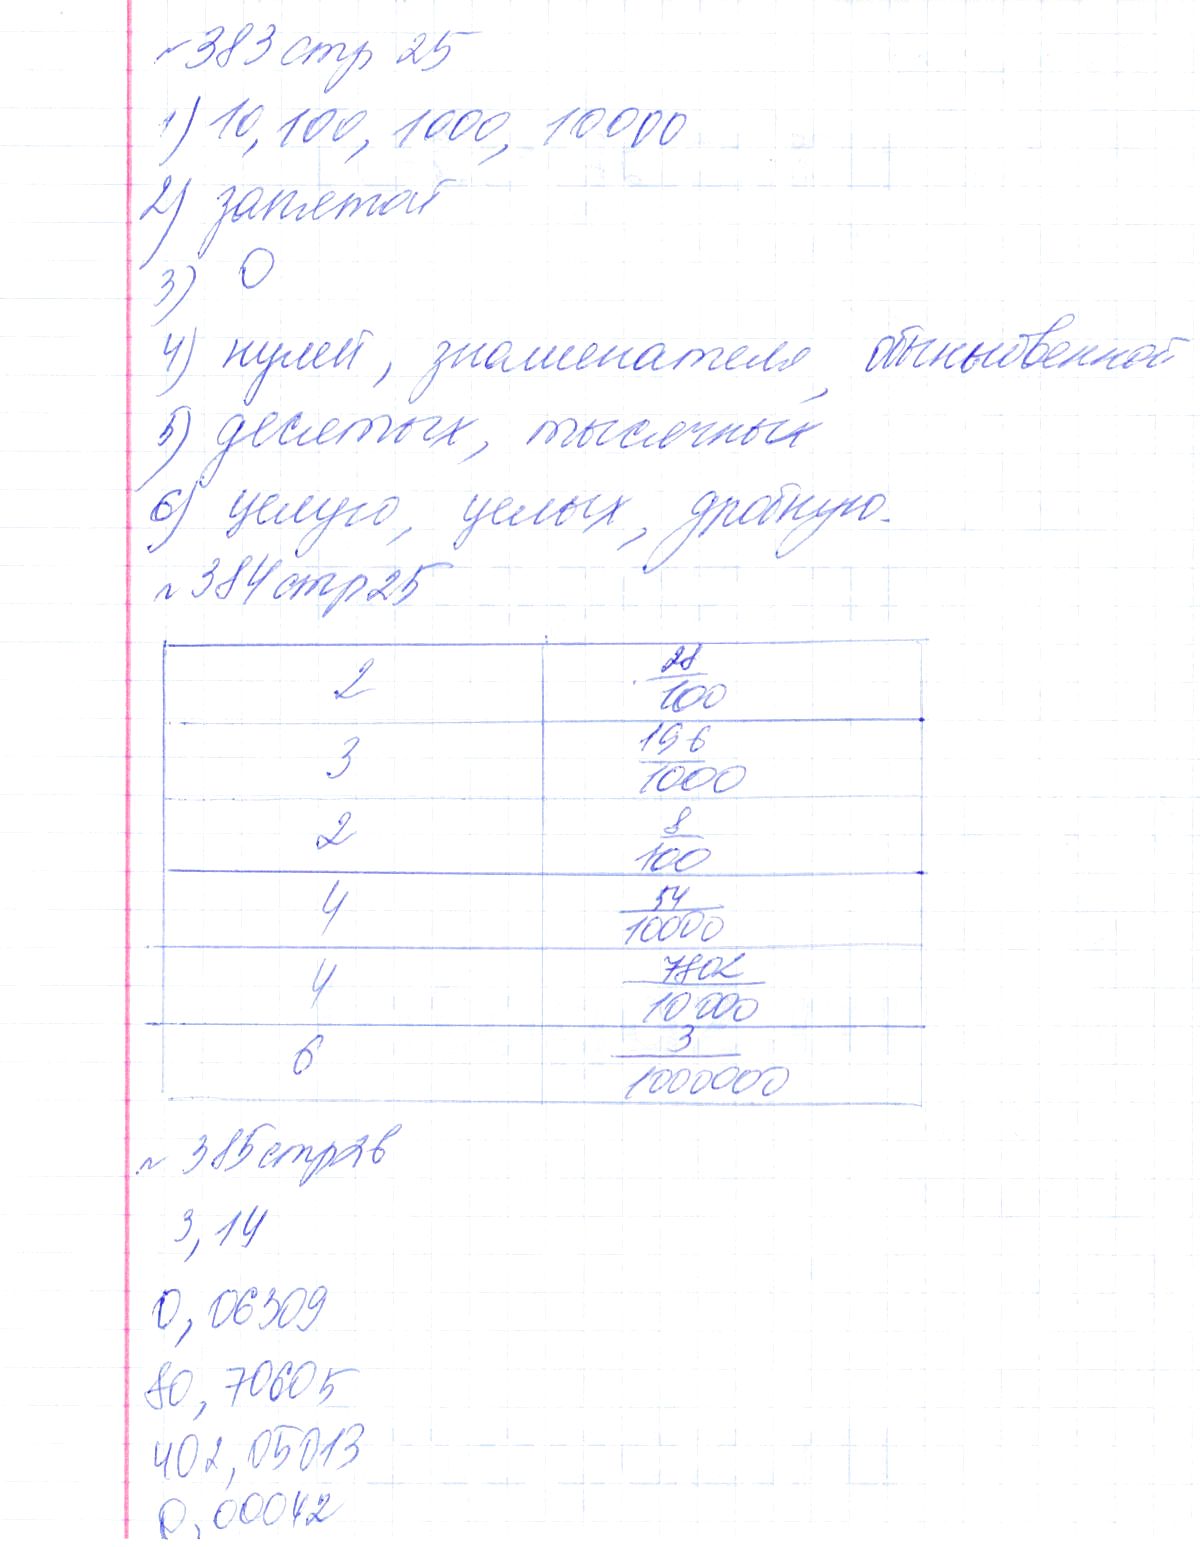 №383 стр 25
1) 10, 100, 1000, 10000
2) запятой
3) 0
4) нулей, знаменателя, обыкновенной
5) десятых, тысячных
6) целую, целых, дробную.
№384 стр 25
2 28/100
3 196/1000
2 8/100
4 54/10000
4 7802/10000
6 3/1000000
№385 стр 26
3,14
0,06309
80,70605
402,05013
0,00042